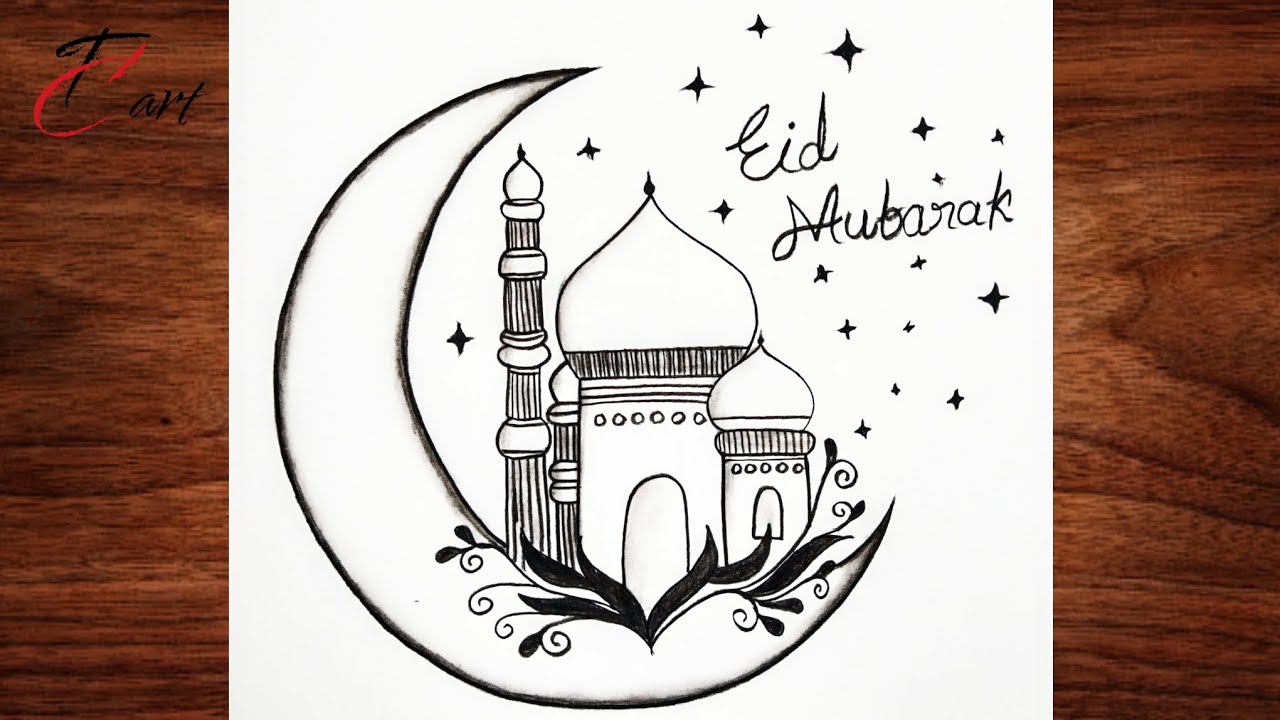 TC art
Eid
Mubarak